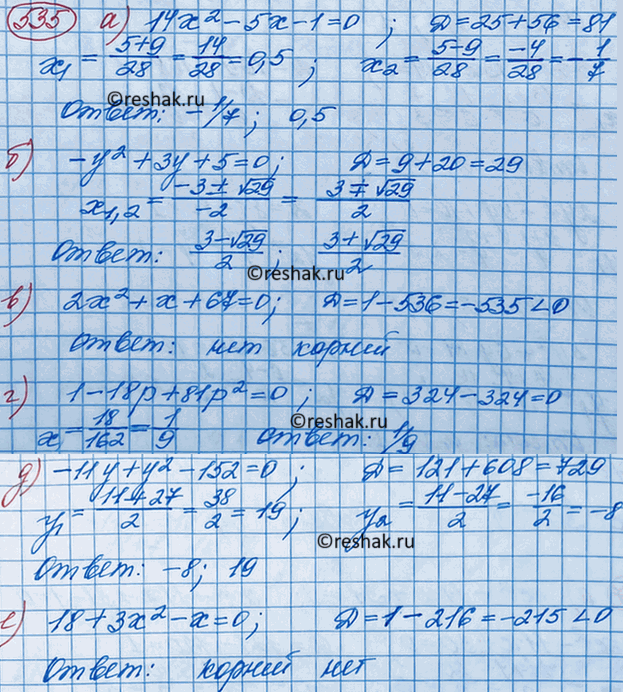 535 а) 14x² - 5x - 1 = 0 ; D = 25 + 56 = 81
x₁ = (5+9)/28 = 14/28 = 0,5 ; x₂ = (5-9)/28 = -4/28 = -1/7
©reshak.ru
Ответ: -1/7 ; 0,5
б) -y² + 3y + 5 = 0 ; D = 9 + 20 = 29
x₁,₂ = (-3 ± √29)/-2 = (3 ∓ √29)/2
Ответ: (3-√29)/2 ; (3+√29)/2
©reshak.ru
в) 2x² + x + 67 = 0 ; D = 1 - 536 = -535 < 0
Ответ: нет корней
г) 1 - 18p + 81p² = 0 ; D = 324 - 324 = 0
©reshak.ru
x = 18/162 = 1/9 Ответ: 1/9
д) -11y + y² - 152 = 0 ; D = 121 + 608 = 729
y₁ = (11+27)/2 = 38/2 = 19 ; y₂ = (11-27)/2 = -16/2 = -8
©reshak.ru
Ответ: -8 ; 19
е) 18 + 3x² - x = 0 ; D = 1 - 216 = -215 < 0
Ответ: корней нет